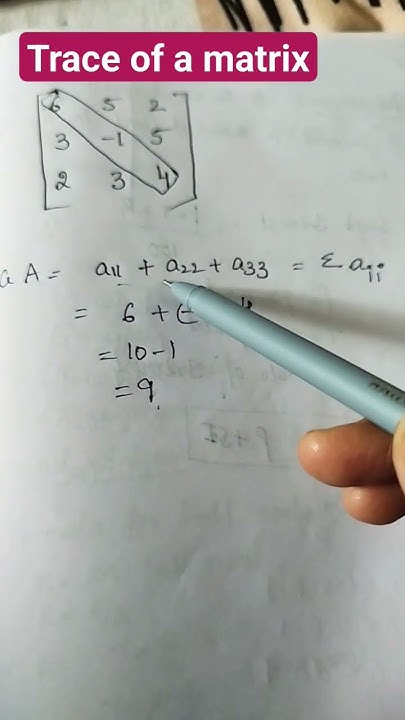 Trace of a matrix
6 5 2
3 -1 5
2 3 4
A = a11 + a22 + a33 = Σ aii
= 6 + (-
= 10-1
= 9